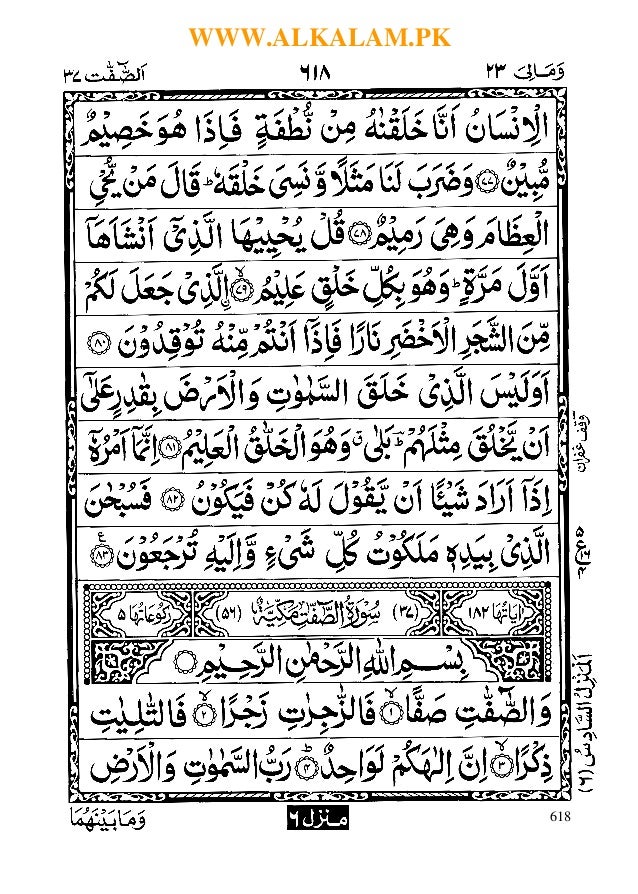 WWW.ALKALAM.PK
وَمَالِیَ ٢٣
٦١٨
اَلصّٰٓفّٰت ٣٧
الْاِنْسَانُ اَنَّا خَلَقْنٰهُ مِنْ نُّطْفَةٍ فَاِذَا هُوَ خَصِیْمٌ
مُّبِیْنٌ ﴿٧٧﴾ وَضَرَبَ لَنَا مَثَلًا وَّنَسِیَ خَلْقَهٗ ؕ قَالَ مَنْ یُّحْیِ
الْعِظَامَ وَهِیَ رَمِیْمٌ ﴿٧٨﴾ قُلْ یُحْیِیْهَا الَّذِیْۤ اَنْشَاَهَاۤ
اَوَّلَ مَرَّةٍ ؕ وَهُوَ بِكُلِّ خَلْقٍ عَلِیْمُ ﴿٧٩﴾ ۙ اِلَّذِیْ جَعَلَ لَكُمْ
مِّنَ الشَّجَرِ الْاَخْضَرِ نَارًا فَاِذَاۤ اَنْتُمْ مِّنْهُ تُوْقِدُوْنَ ﴿٨٠﴾
اَوَلَیْسَ الَّذِیْ خَلَقَ السَّمٰوٰتِ وَالْاَرْضَ بِقٰدِرٍ عَلٰۤی
اَنْ یَّخْلُقَ مِثْلَهُمْ ؕ بَلٰی ۗ وَهُوَ الْخَلّٰقُ الْعَلِیْمُ ﴿٨١﴾ اِنَّمَاۤ اَمْرُهٗۤ
وقف غفران
اِذَاۤ اَرَادَ شَیْئًا اَنْ یَّقُوْلَ لَهٗ كُنْ فَیَكُوْنُ ﴿٨٢﴾ فَسُبْحٰنَ
الَّذِیْ بِیَدِهٖ مَلَكُوْتُ كُلِّ شَیْءٍ وَّاِلَیْهِ تُرْجَعُوْنَ ﴿٨٣﴾ ع
اٰیَاتُهَا ١٨٢ (٣٧) سُوْرَةُ الصّٰٓفّٰتِ مَكِّیَّةٌ (٥٦) رُكُوْعَاتُهَا ٥
بِسْمِ اللّٰهِ الرَّحْمٰنِ الرَّحِیْمِ
وَالصّٰٓفّٰتِ صَفًّا ﴿١﴾ ۙ فَالزّٰجِرٰتِ زَجْرًا ﴿٢﴾ ۙ فَالتّٰلِیٰتِ
ذِكْرًا ﴿٣﴾ ۙ اِنَّ اِلٰهَكُمْ لَوَاحِدٌ ﴿٤﴾ ؕ رَبُّ السَّمٰوٰتِ وَالْاَرْضِ
اَلْمَنْزِلُ السَّادِسُ (٦)
وَمَا بَیْنَهُمَا
منزل ٦
618